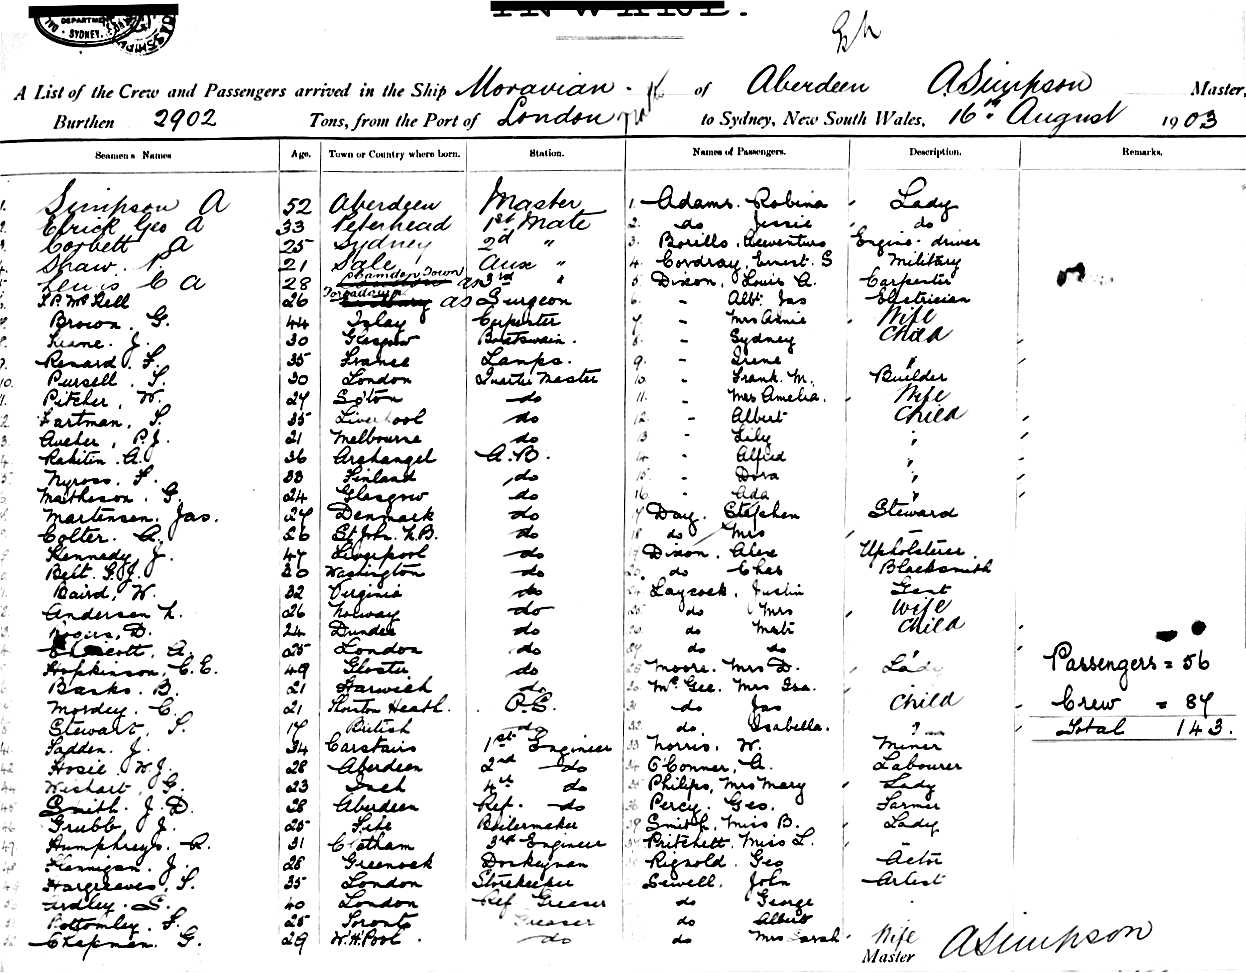 DEPARTMENT
SYDNEY.
INWARD.
A List of the Crew and Passengers arrived in the Ship Moravian of Aberdeen A Simpson Master,
Burthen 2902 Tons, from the Port of London to Sydney, New South Wales, 16th August 1903
Seamens Names Age. Town or Country where born. Station. Names of Passengers. Description. Remarks.
1. Simpson A 52 Aberdeen Master 1. Adams. Robina Lady
2. Etrick Geo A 33 Peterhead 1st Mate 2. do Jessie do
3. Corbett A 25 Sydney 2nd " 3. Borillo. Engine-driver
4. Shaw. 21 Sale Aux " 4. Cordray, Ernest. G Military
Lewis C A 28 Camden Town as 3rd " 5. Dixon, Louis A. Carpenter
26 as Surgeon 6. " Albt. Jas Electrician
Brown, G. 44 Islay Carpenter 7. - Mrs Annie Wife
Keane. J. 30 Glasgow Boatswain. 8. - Sydney Child
9. Renard. F. 35 France Lamps. 9. - Irene "
10. Pursell. S. 30 London Quarter Master 10. - Frank. M. Builder
11. Pitcher, W. 27 do 11. - Mrs Amelia. Wife
2. Hartman, S. 35 Liverpool do 12. - Albert Child
3. P.J. 21 Melbourne do 13 - Lily "
4. Rakiten. A. 36 Archangel A.B. 14. - Alfred "
5 Nyross. F. 33 Finland do 15. - Dora "
Matheson. G. 24 Glasgow do 16. - Ada "
Martensen, Jas. 27 Denmark do 17 Day. Stephen Steward
Colter. A. 26 St John. N.B. do 18 do Mrs
Kennedy, J. 47 Liverpool do Dixon, Alex Upholsterer.
Belt. G.J. 30 Washington do do Chas Blacksmith
Baird, W. 32 Virginia do Laycock, Justin Gent
Andersen N. 26 Norway do do Mrs Wife
D. 24 Dundee do do Child
A. 25 London do do do
Hopkinson, C.E. 49 Gloster do Moore. Mrs D. Lady Passengers = 56
Banks. B. 21 Harwich do McGee. Mrs Isa.
Mordey. C. 21 Thornton Heath. P.S. do Jas Child Crew = 87
Stewart, S. 17 British do do. Isabella. " Total 143.
Fadden. J. 34 Carstairs 1st Engineer Norris. W. Miner
Hosie. W.J. 28 Aberdeen 2nd do O'Conner, A. Labourer
Wishart. G. 23 Insch 4th do Philips, Mrs Mary Lady
Smith. J. D. 38 Aberdeen Ref. do Percy. Geo. Farmer
Grubb. J. 25 Fife Boilermaker Smith, Miss B. Lady
Humphreys. R. 31 Chatham 3rd Engineer Pritchett, Miss L.
Flannigan. J. 28 Greenock Donkeyman Rignold. Geo Actor
Hargreaves. S. 35 London Storekeeper Sewell. John Artist
Ardley. S. 40 London Ref Greaser do George
Bottomley. F. 25 Toronto Greaser do Albert
Chapman. G. 29 W.H.Pool. do do Mrs Sarah Wife
Master A Simpson